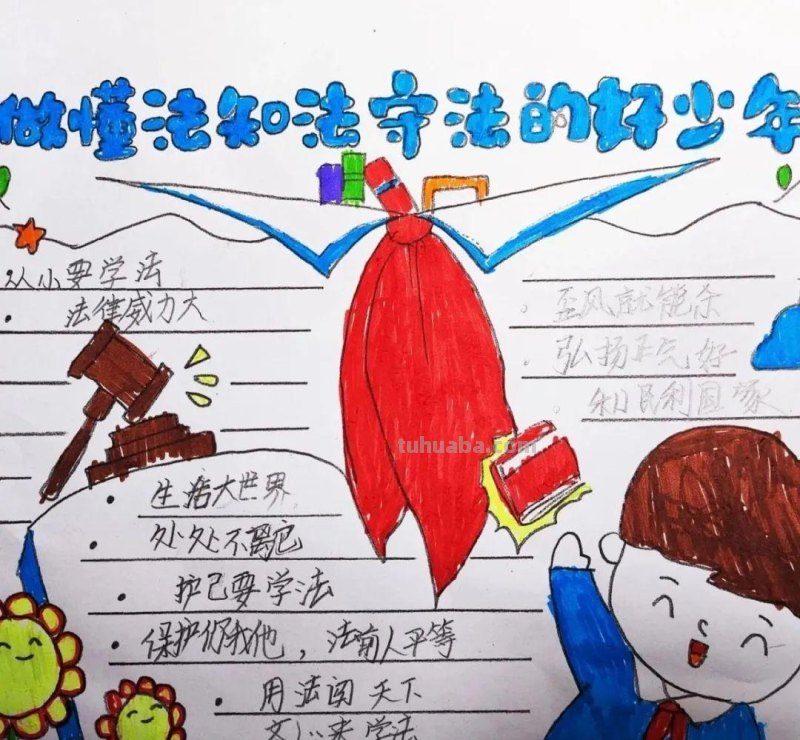 做懂法知法守法的好少年
从小要学法
法律威力大
歪风就能杀
弘扬正气好
利民利国家
tuhuaba.com
生活大世界
处处不离它
护己要学法
保护你我他，法前人平等
用法闯天下
学法